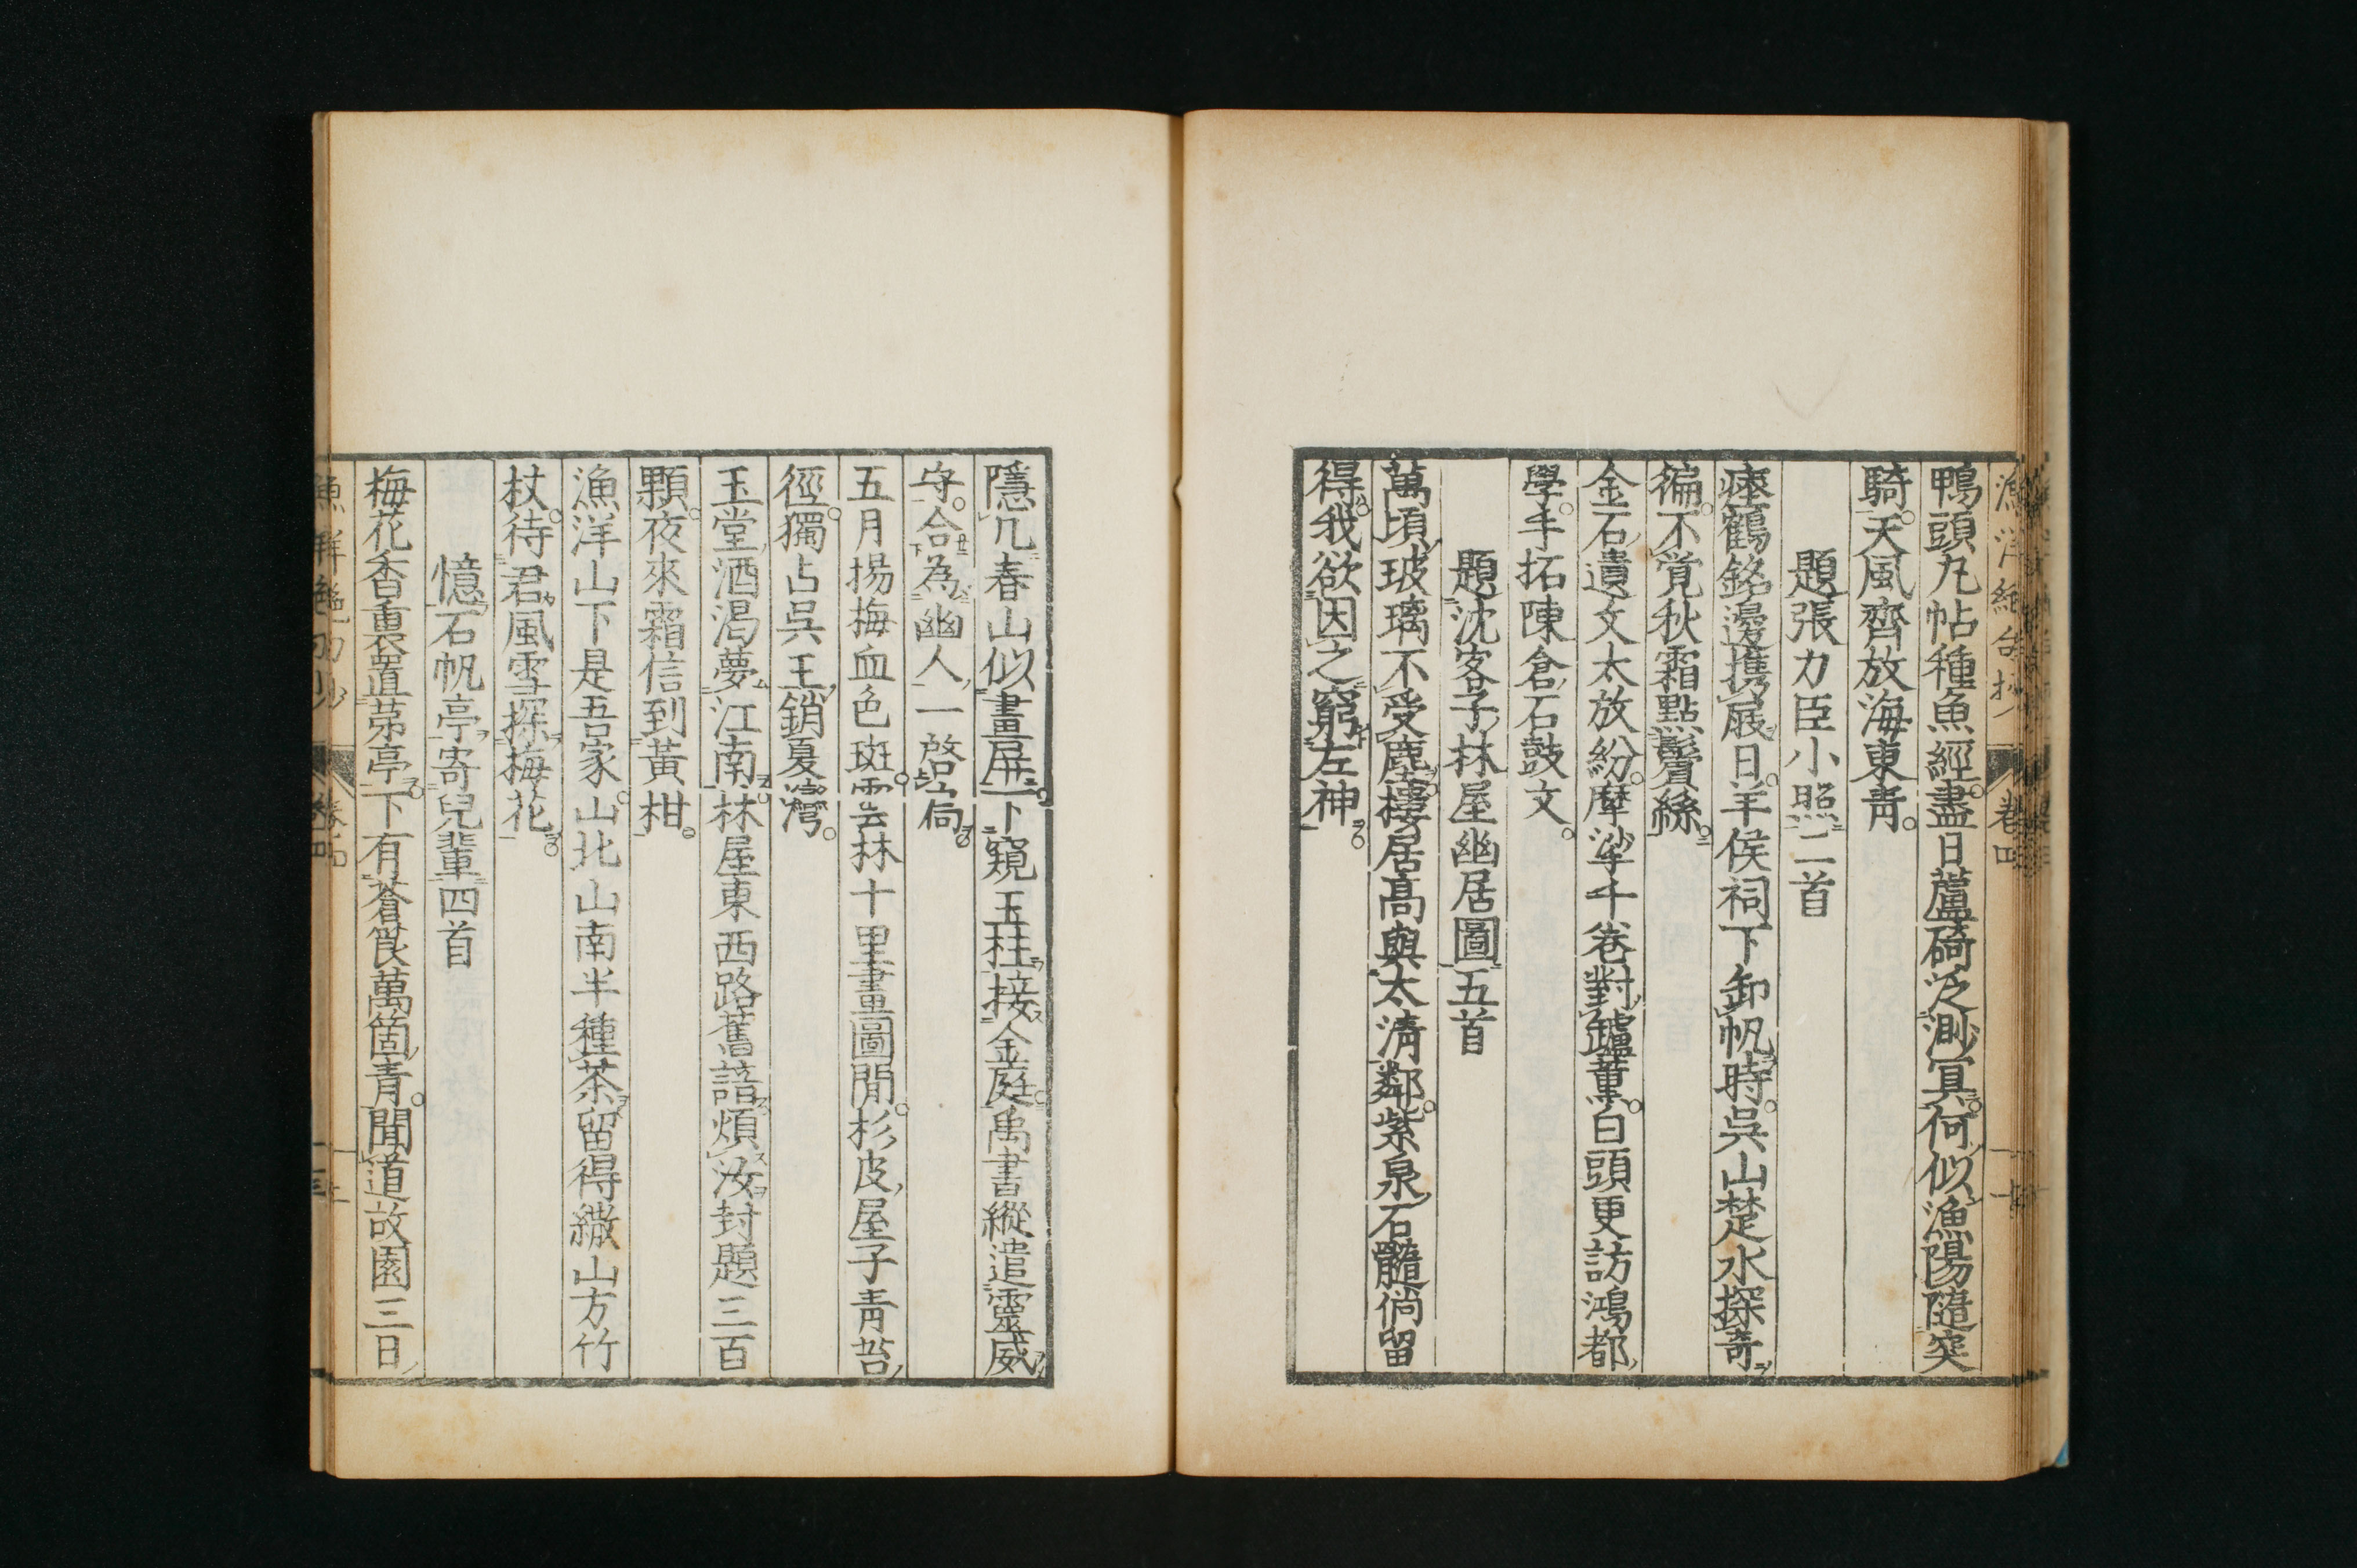 鴨頭丸帖種魚經盡日蘆碕泛渺冥何似漁陽隨突
騎天風齊放海東青
題張力臣小照二首
瘞鶴銘邊携屐日羊侯祠下卸帆時呉山楚水探奇
徧不覺秋霜點鬢絲
金石遺文太放紛摩挲千卷對鑪薫白頭更訪鴻都
學手拓陳倉石鼓文
題沈客子林屋幽居圖五首
萬頃玻璃不受塵樓居髙與太淸鄰紫泉石髓倘留
得我欲因之窮左神
隱几春山似畫屏下窺玉柱接金庭禹書縱遣靈威
守合為幽人一啓扃
五月楊梅血色斑雲林十里畫圖閒杉皮屋子青苔
徑獨占呉王銷夏灣
玉堂酒渴夢江南林屋東西路舊諳煩汝封題三百
顆夜來霜信到黃柑
漁洋山下是吾家山北山南半種茶留得繖山方竹
杖待君風雪探梅花
憶石帆亭寄兒輩四首
梅花香裏置茅亭下有蒼筤萬箇青聞道故園三日